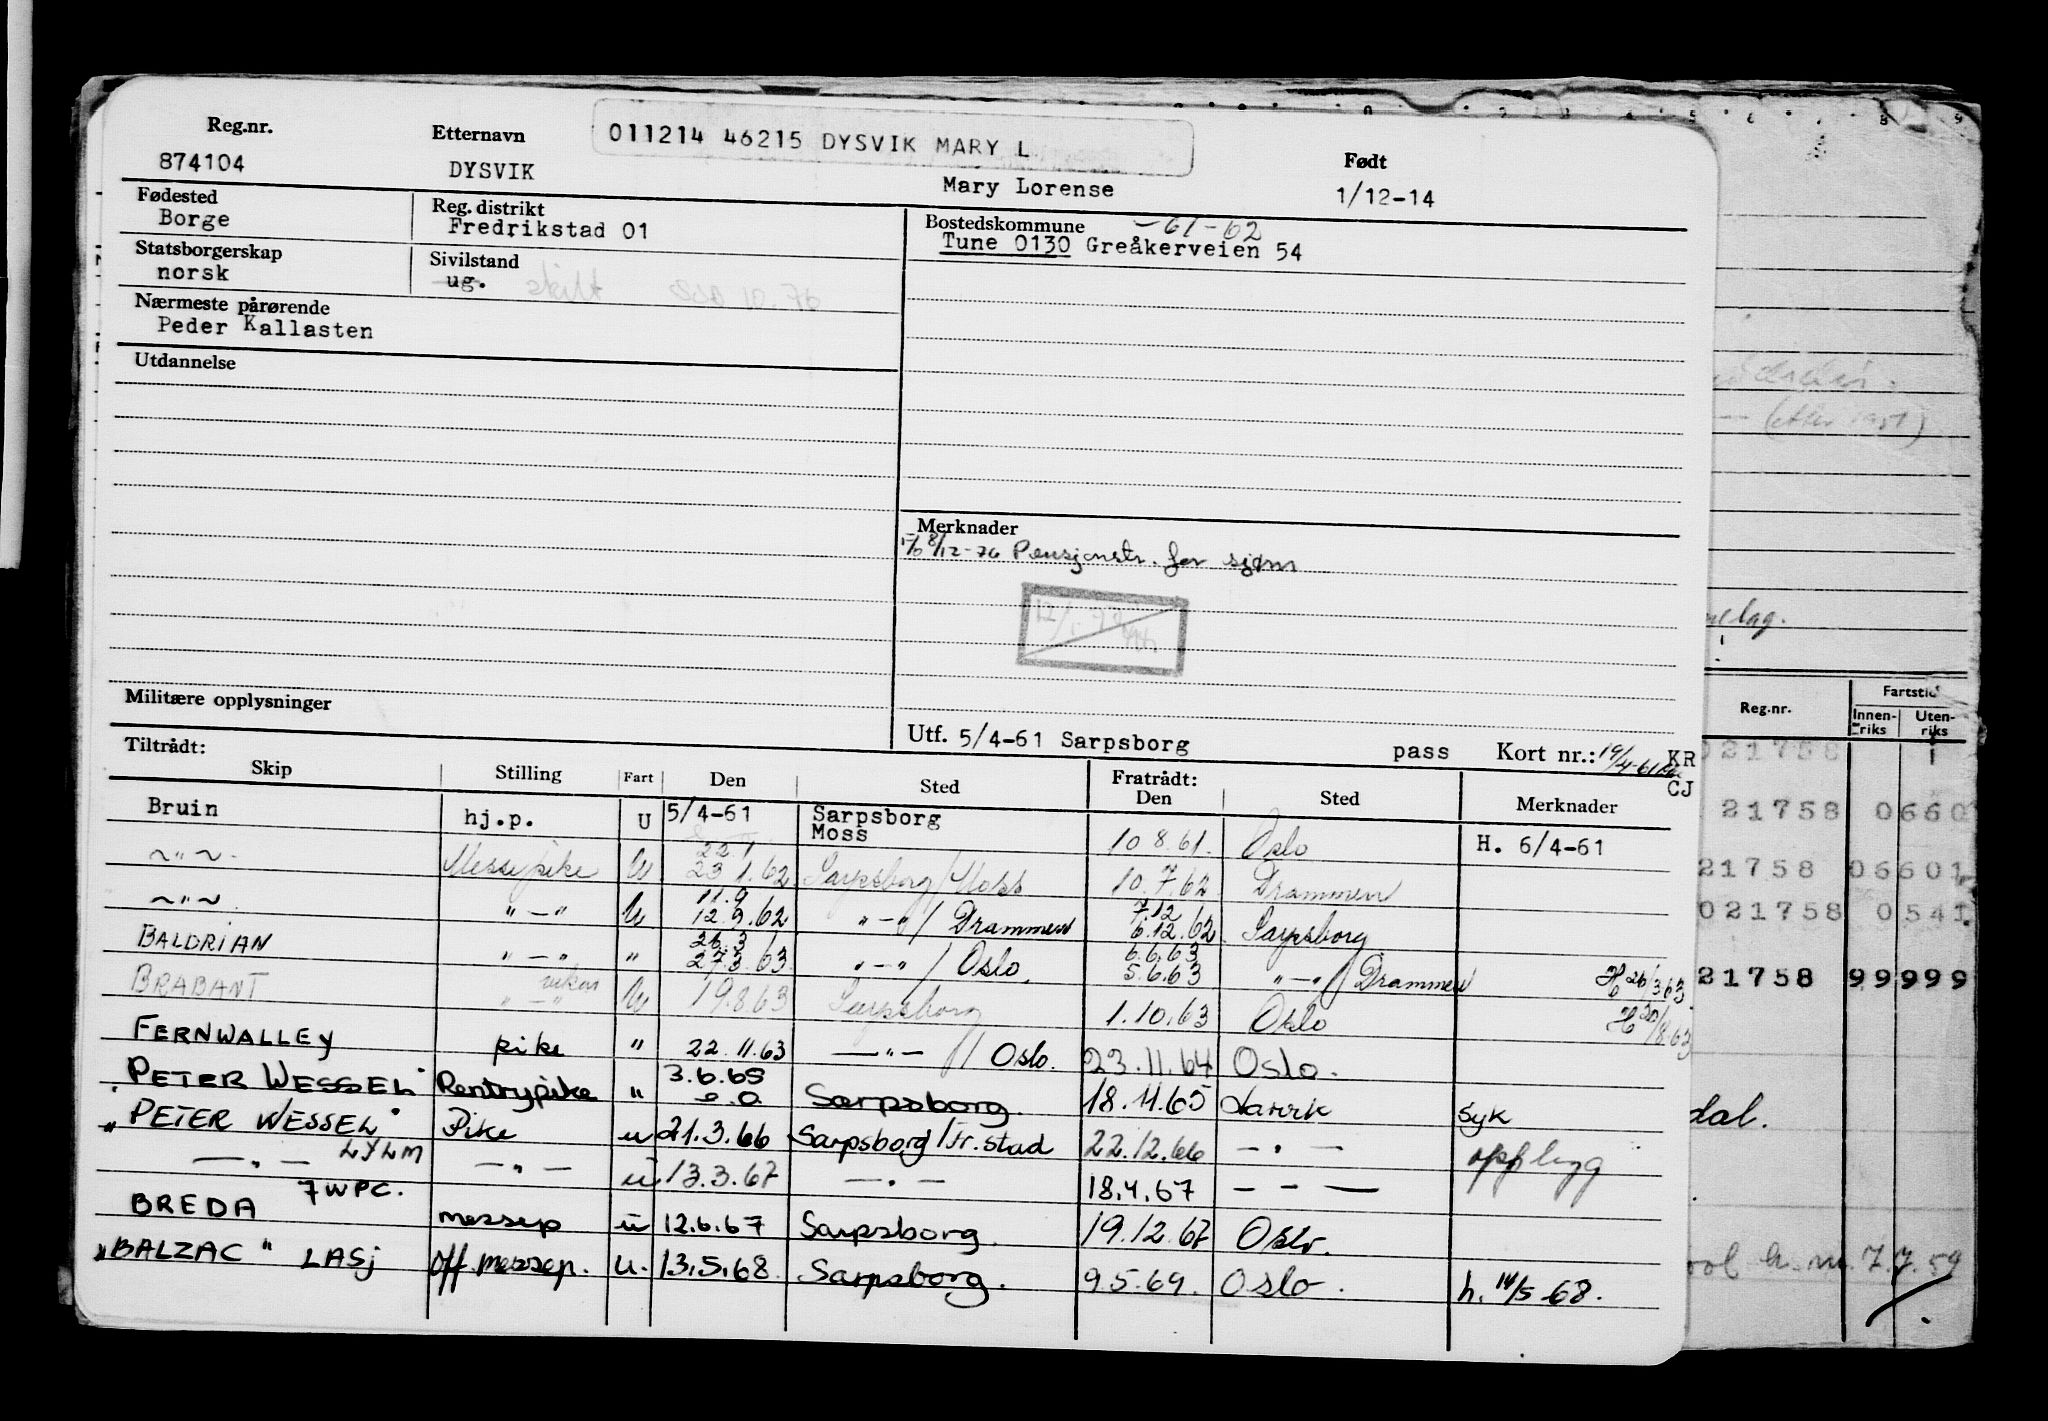 011214 46215 DYSVIK MARY L
Reg.nr. Etternavn Født
874104 DYSVIK Mary Lorense 1/12-14
Fødested Reg. distrikt Bostedskommune -61-62
Borge Fredrikstad 01 Tune 0130 Greåkerveien 54
Statsborgerskap Sivilstand
norsk ug. skilt 10.76
Nærmeste pårørende
Peder Kallasten
Utdannelse
Merknader
8/12-76 Pensjonstr. for sjøm
Militære opplysninger
Utf. 5/4-61 Sarpsborg pass Kort nr.: 19/4-61 KR
CJ
Tiltrådt: Fratrådt:
Skip Stilling Fart Den Sted Den Sted Merknader
Bruin hj.p. U 5/4-61 Sarpsborg Moss 10 8.61. Oslo H. 6/4-61
~"~ Messepike U 22.1 23 1.62 Sarpsborg/Moss 10.7.62 Drammen
~"~ "-" U 11.9 12.9.62 "-"/Drammen 7.12 6.12.62 Sarpsborg
BALDRIAN "-" " 26.3 27.3.63 "-"/Oslo. 6.6.63 5.6.63 "-"/Drammen H 26/3 63
BRABANT "-" vikar U 19.8 63 Sarpsborg 1.10.63 Oslo H 20/8.63
FERNWALLEY pike " 22.11.63 —"—/Oslo. 23.11.64 Oslo.
"PETER WESSEL" Pentrypike " 3.6.65 Sarpsborg. 18.11.65 Larvik syk
"PETER WESSEL" LYLM Pike u 21.3.66 Sarpsborg/Fr.stad 22.12.66 — " — opplegg
— " — — " — u 13.3.67 — " — 18.4.67 — - —
BREDA 7WPC. messep u 12.6.67 Sarpsborg. 19.12.67 Oslo.
"BALZAC" LASJ off.messep. u. 13.5.68. Sarpsborg. 9.5.69. Oslo. h. 14/5-68.
(etter 1951)
Reg.nr. Fartstid
Innenriks Utenriks
021758 1
21758 0660
21758 06601
021758 0541
21758 99999
dal.
h. m. 7.7.59